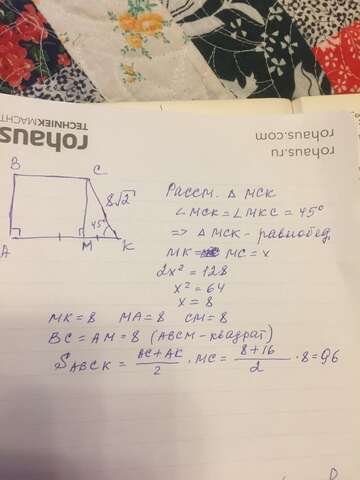 rohaus
TECHNIEKMACHT
rohaus.com
rohaus.ru
B
C
8√2
45°
A
M
K
Рассм. △ MCK
∠MCK = ∠MKC = 45°
⇒ △ MCK - равнобед.
MK = MC = x
2x² = 128
x² = 64
x = 8
MK = 8 MA = 8 CM = 8
BC = AM = 8 (ABCM - квадрат)
S ABCK = AC + AK / 2 · MC = 8 + 16 / 2 · 8 = 96